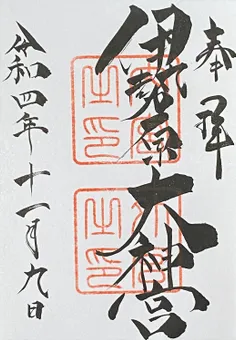 奉拝
伊勢原大神宮
令和四年十一月九日